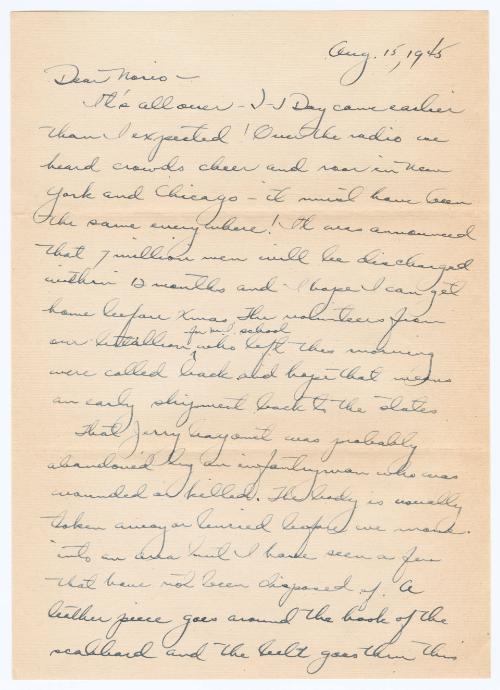 Aug. 15, 1945
Dear Norio –
It's all over – V-J Day came earlier
than I expected! Over the radio we
heard crowds cheer and roar in New
York and Chicago – it must have been
the same everywhere! It was announced
that 7 million men will be discharged
within 12 months and I hope I can get
home before Xmas. The volunteers from
for mil. school
our battallion who left this morning
were called back and hope that means
an early shipment back to the States
That Jerry bayonet was probably
abandoned by an infantryman who was
wounded or killed. The body is usually
taken away or buried before we move
into an area but I have seen a few
that have not been disposed of. A
leather piece goes around the hook of the
scabbard and the belt goes thru this